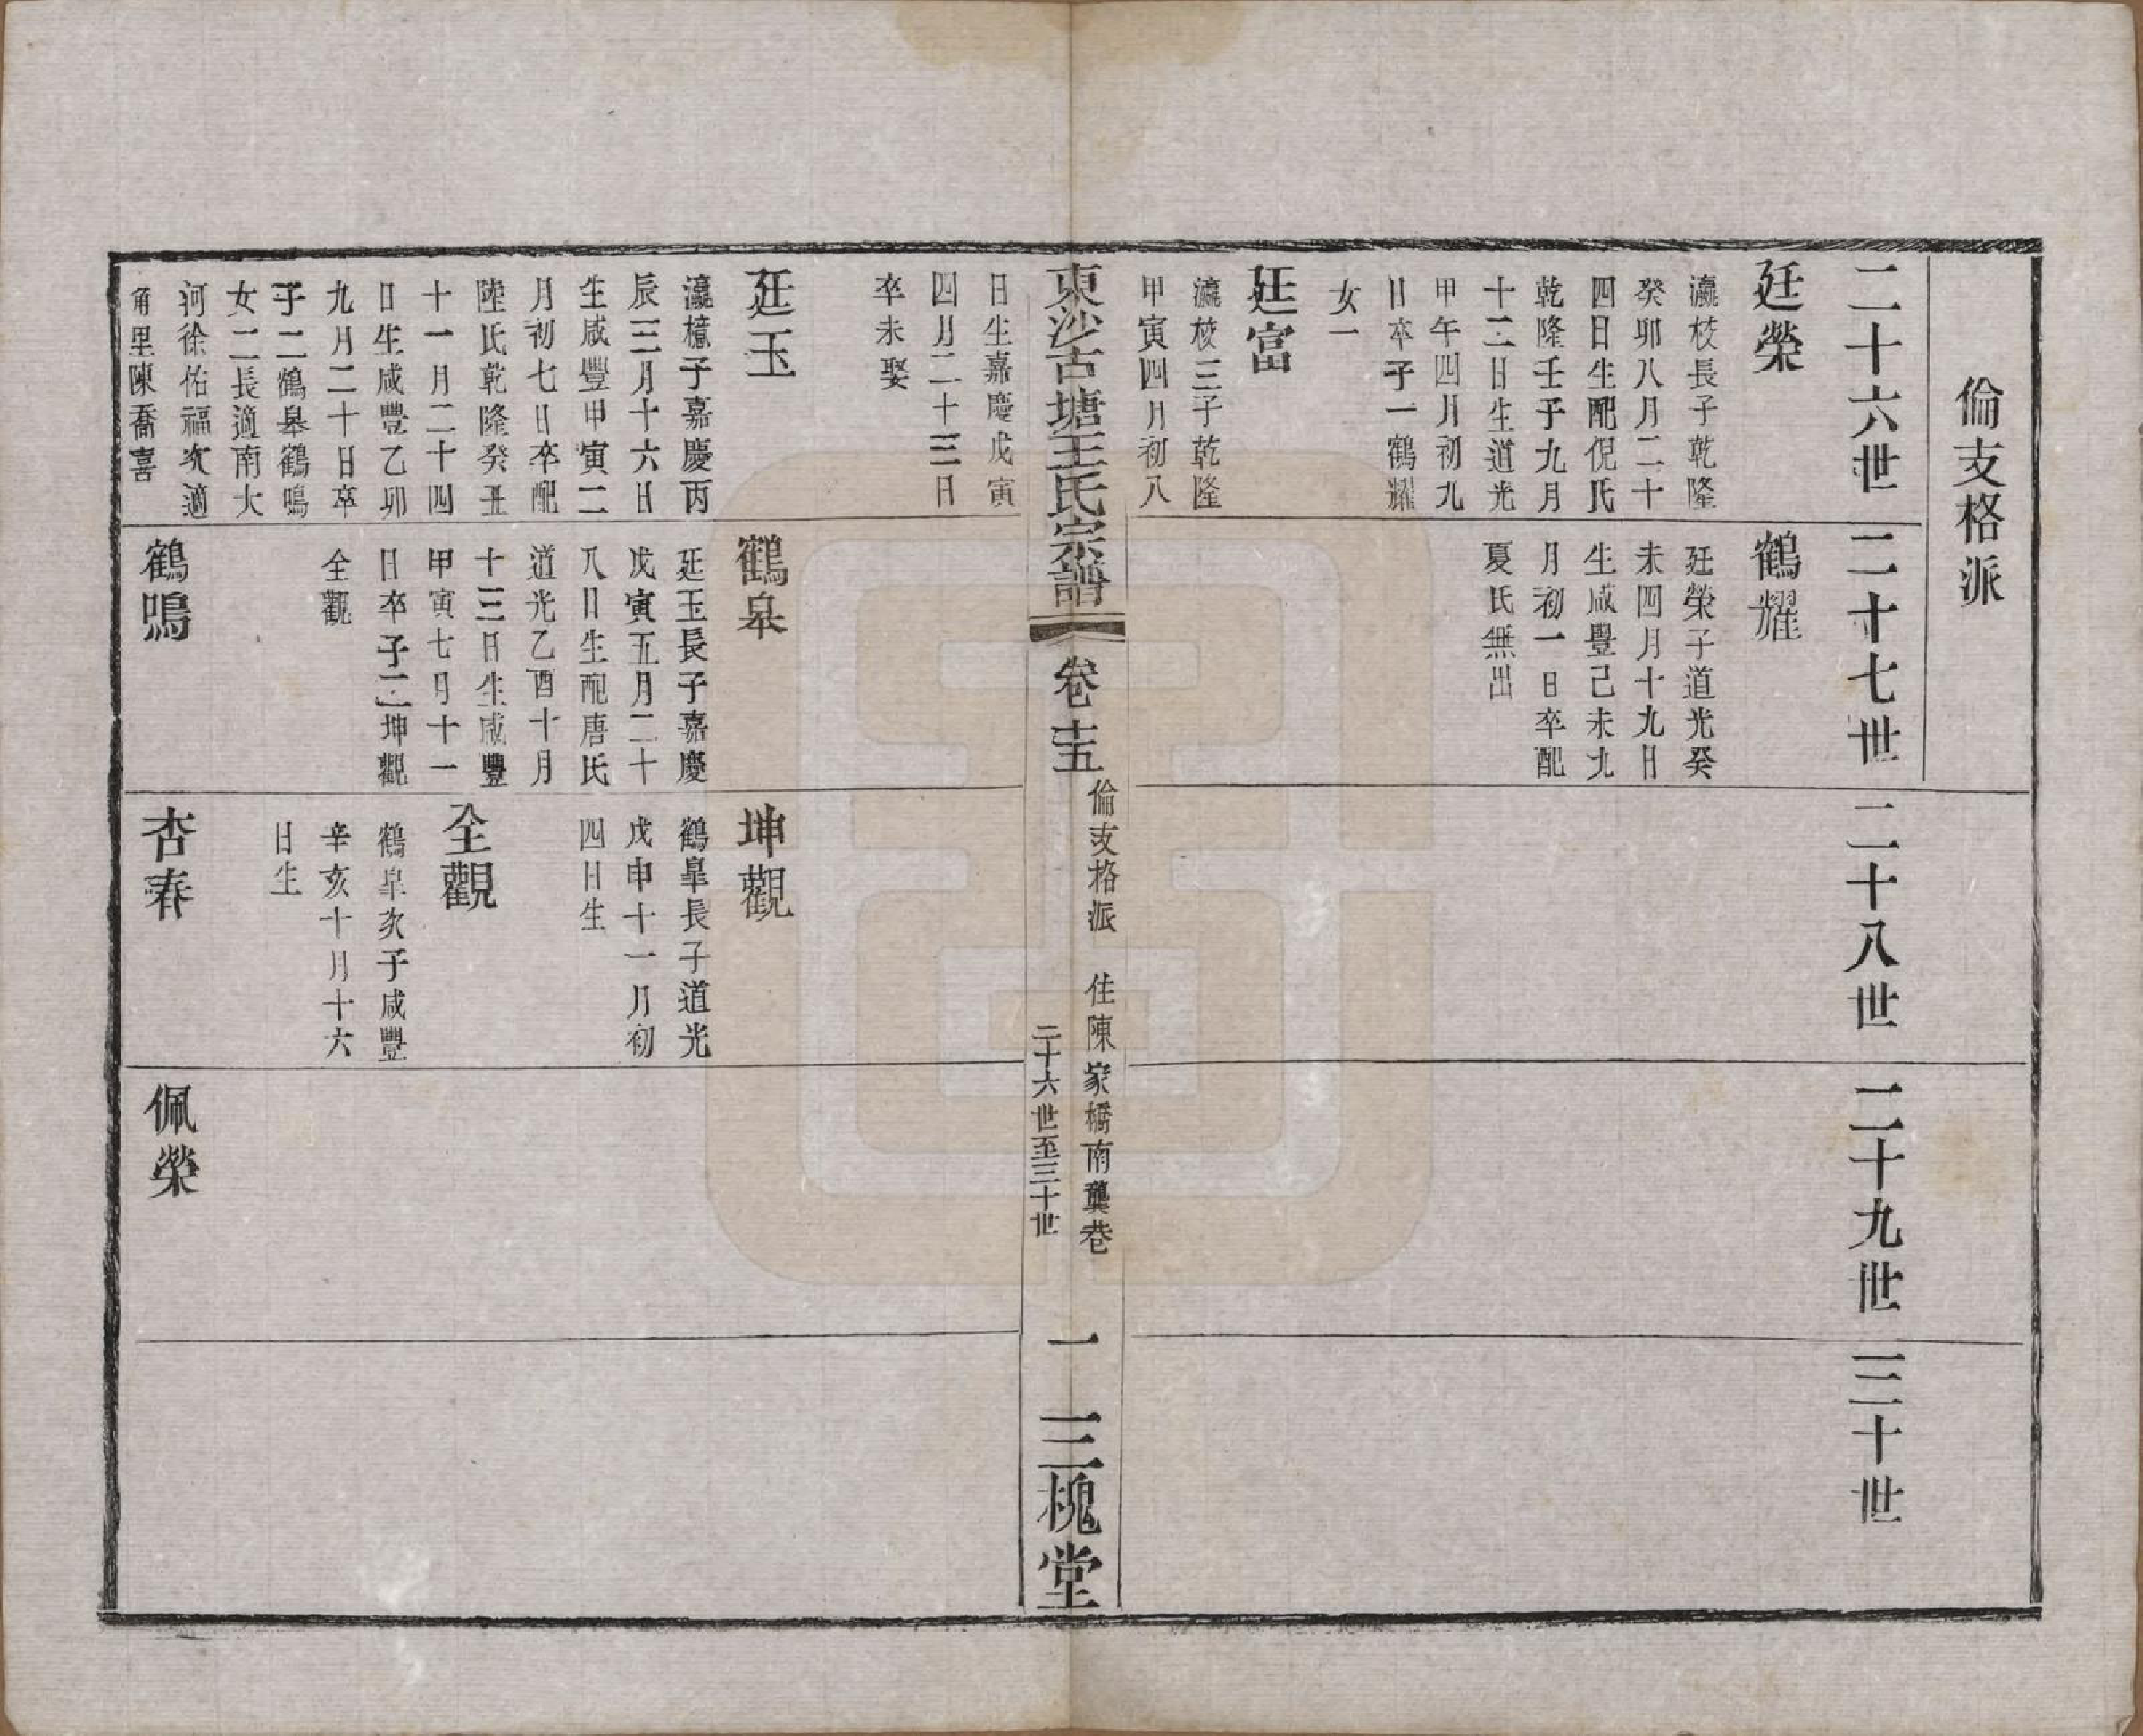 倫支格派
二十六世
廷榮
瀛枝長子乾隆
癸卯八月二十
四日生配倪氏
乾隆壬子九月
十二日生道光
甲午四月初九
日卒子一鶴耀
女一
廷富
瀛枝三子乾隆
甲寅四月初八
二十七世
鶴耀
廷榮子道光癸
未四月十九日
生咸豐己未九
月初一日卒配
夏氏無出
二十八世
二十九世
三十世
東沙古塘王氏宗譜
卷十五
倫支格派 住陳家橋南龔巷
二十六世至三十世
一
三槐堂
日生嘉慶戊寅
四月二十三日
卒未娶
廷玉
瀛檍子嘉慶丙
辰三月十六日
生咸豐甲寅二
月初七日卒配
陸氏乾隆癸丑
十一月二十四
日生咸豐乙卯
九月二十日卒
子二鶴皋鶴鳴
女二長適南大
河徐佑福次適
角里陳喬喜
鶴皋
廷玉長子嘉慶
戊寅五月二十
八日生配唐氏
道光乙酉十月
十三日生咸豐
甲寅七月十一
日卒子二坤觀
全觀
鶴鳴
坤觀
鶴皐長子道光
戊申十一月初
四日生
全觀
鶴皐次子咸豐
辛亥十月十六
日生
杏春
佩榮